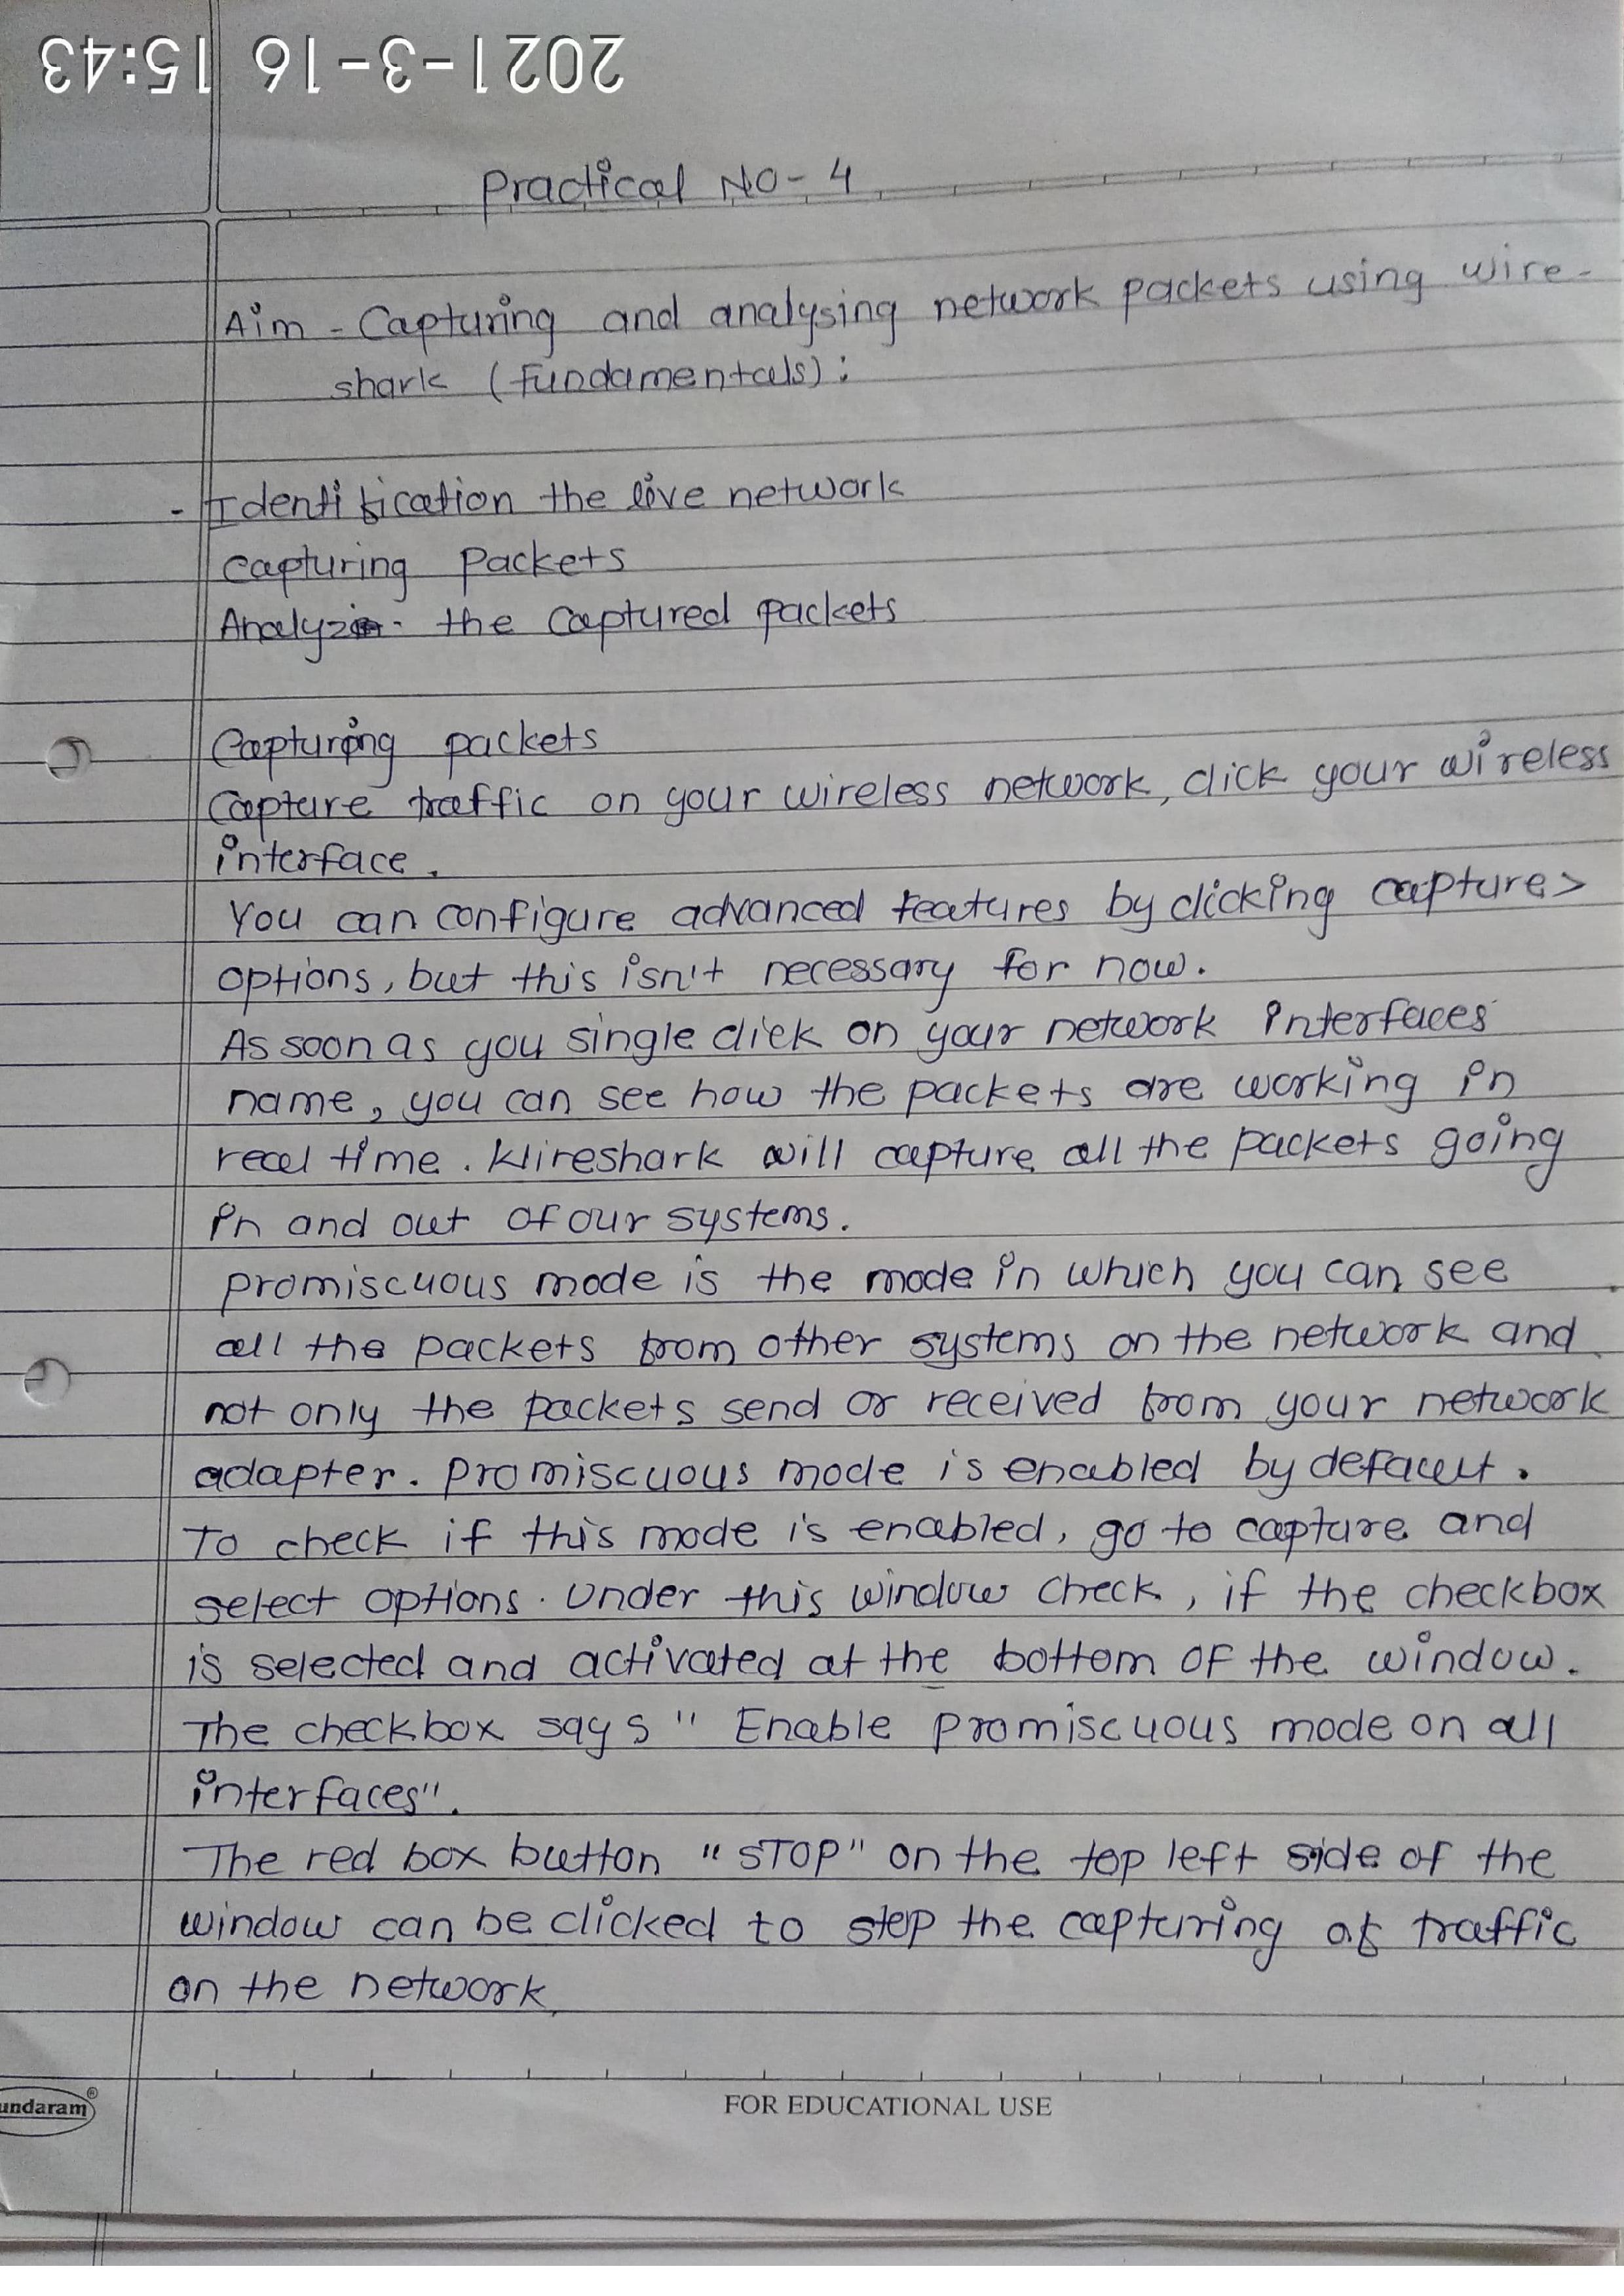 2021-3-16 15:43
Practical No- 4
Aim - Capturing and analysing network packets using wire-
shark (fundamentals):
- Identification the live network
Capturing Packets
the captured packets
Capturing packets
Capture traffic on your wireless network, click your wireless
interface.
You can configure advanced features by clicking capture>
options, but this isn't necessary for now.
As soon as you single click on your network interfaces
name, you can see how the packets are working in
real time. Wireshark will capture all the packets going
in and out of our systems.
promiscuous mode is the mode in which you can see
all the packets from other systems on the network and
not only the packets send or received from your network
adapter. promiscuous mode is enabled by default.
To check if this mode is enabled, go to capture and
select options. Under this window check, if the checkbox
is selected and activated at the bottom of the window.
The checkbox says " Enable promiscuous mode on all
interfaces".
The red box button "STOP" on the top left side of the
window can be clicked to stop the capturing of traffic
on the network
undaram®
FOR EDUCATIONAL USE